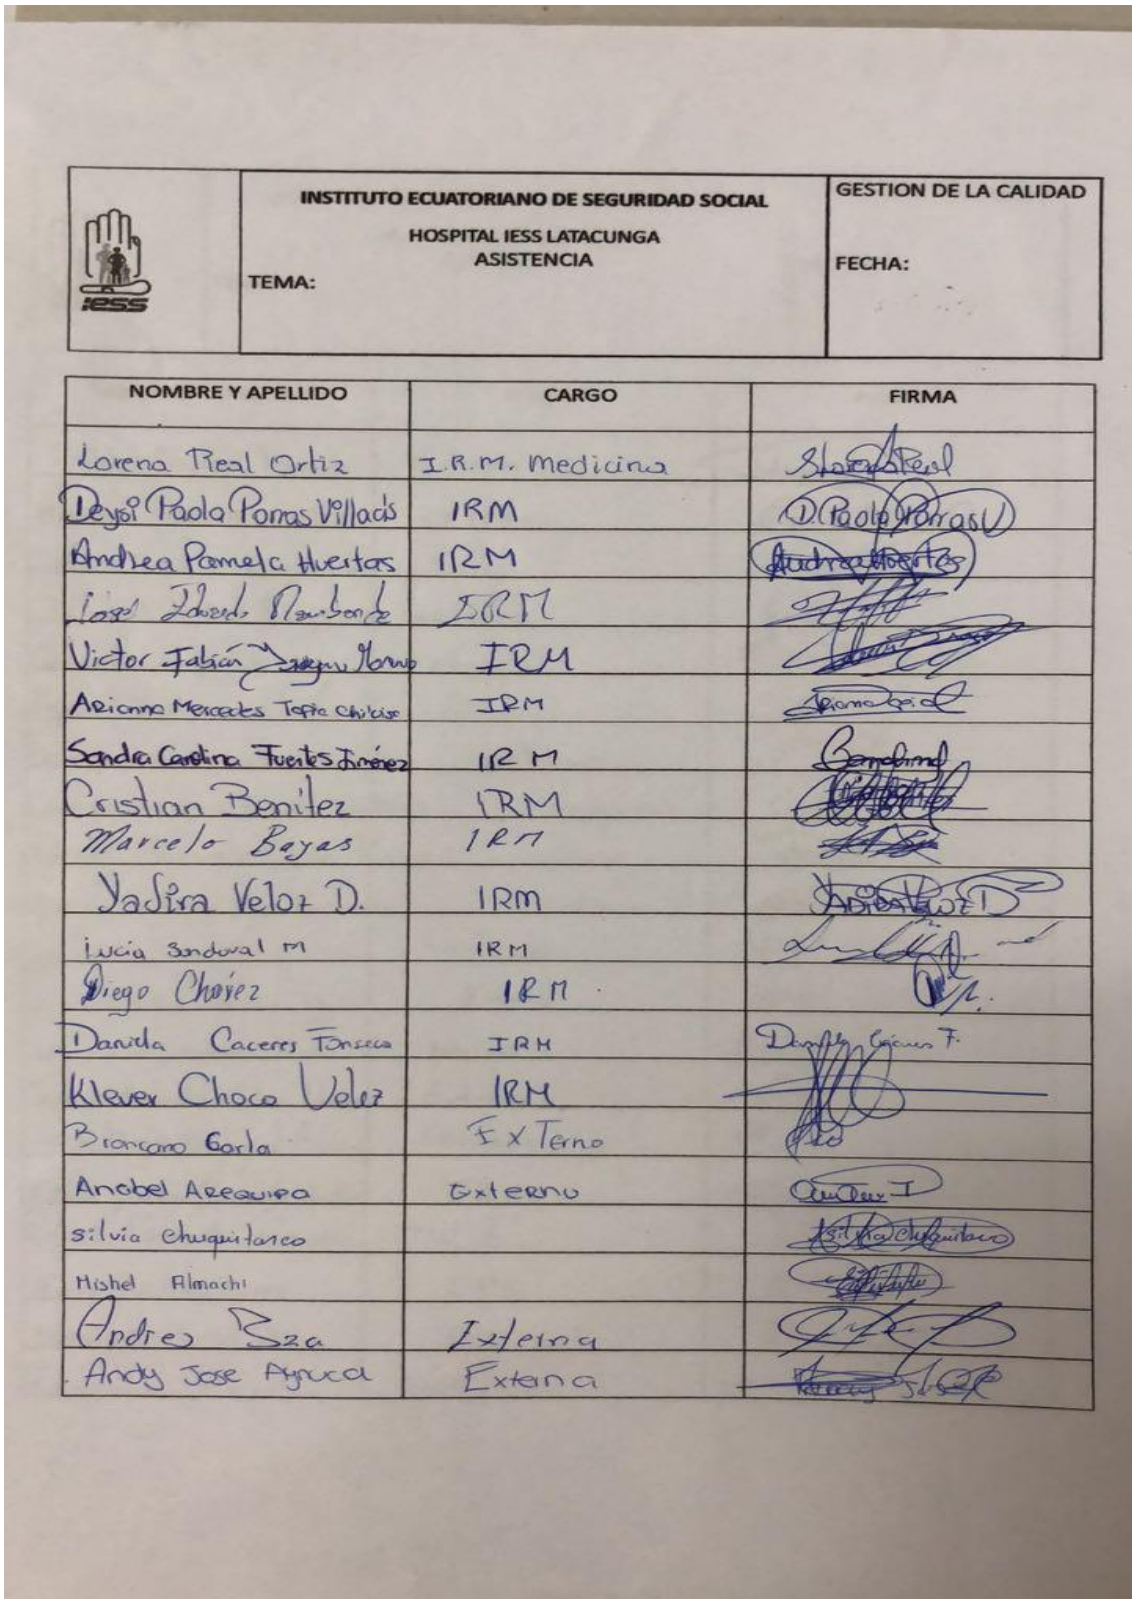 INSTITUTO ECUATORIANO DE SEGURIDAD SOCIAL
HOSPITAL IESS LATACUNGA
ASISTENCIA
TEMA:
GESTION DE LA CALIDAD
FECHA:
iess
NOMBRE Y APELLIDO CARGO FIRMA
Lorena Real Ortiz I.R.M. Medicina
Deysi Paola Porras Villacis IRM D. Paola Porras V
Andrea Pamela Huertas IRM Andrea Huertas
IRM
Victor Fabián IRM
Arianna Mercedes Tapia IRM
Sandra Carolina Fuertes Jiménez IRM
Cristian Benitez IRM
Marcelo Bayas IRM
Yadira Veloz D. IRM Yadira Veloz D
Lucía Sandoval M IRM
Diego Chávez IRM
Daniela Caceres Fonseca IRM Daniela Cáceres F.
Klever Choco Velez IRM
Broncano Carla Externo
Anabel Arequipa Externo
Silvia Chuquitarco Silvia Chuquitarco
Mishel Almachi
Andrez Externa
Andy Jose Externa